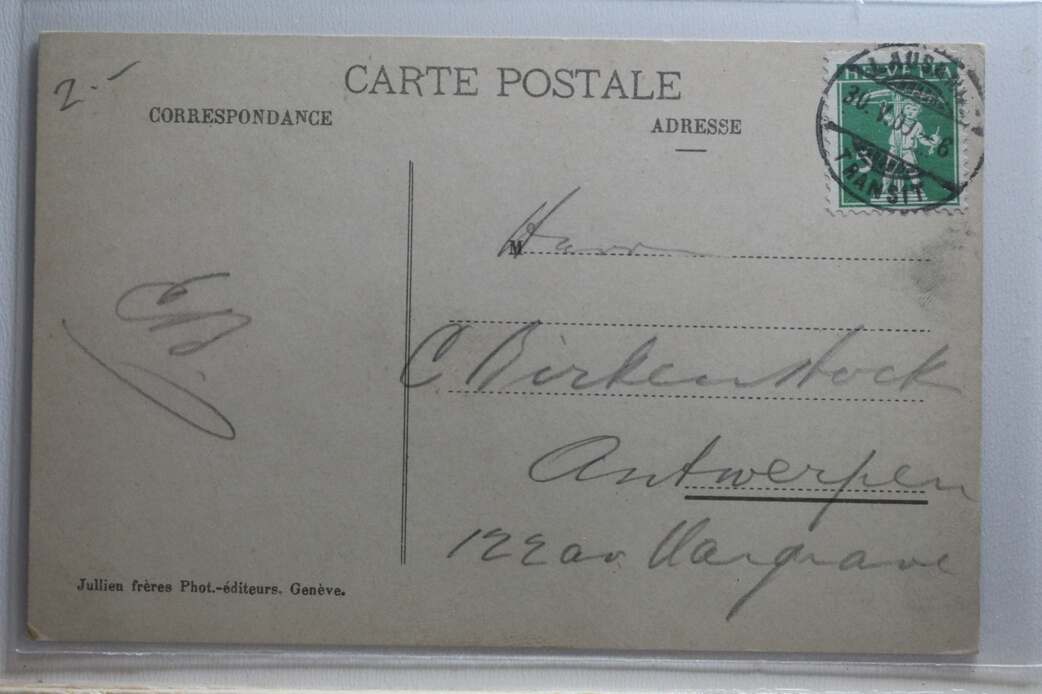 2.-
CARTE POSTALE
CORRESPONDANCE
ADRESSE
HELVETIA
LAUSANNE
TRANSIT
5
M
Herrn
C Birkenstock
Antwerpen
122 av Margrave
Jullien frères Phot.-éditeurs. Genève.